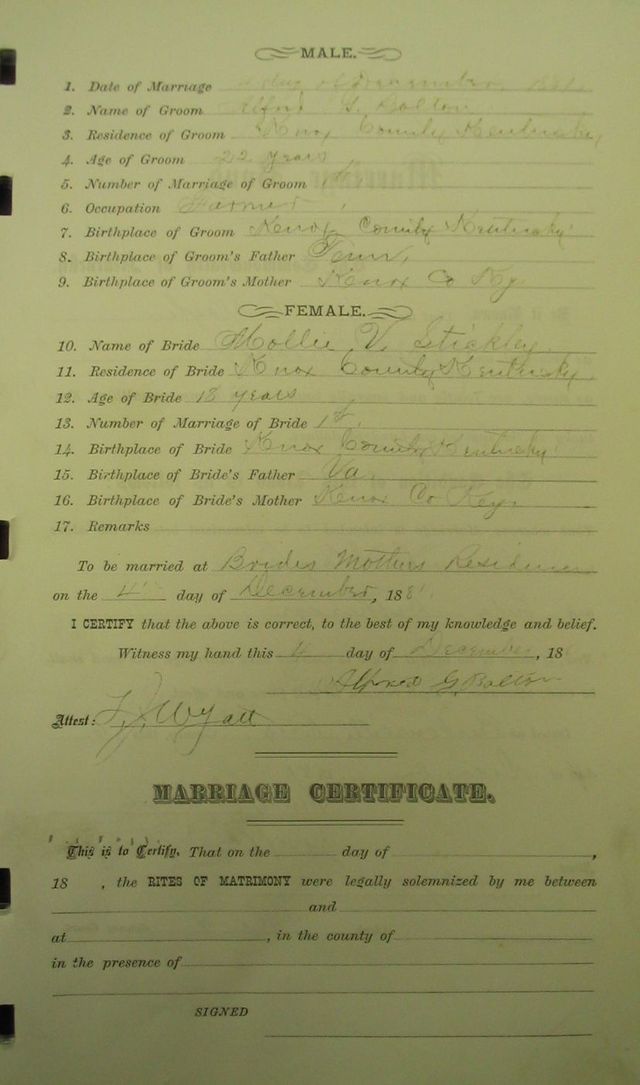 MALE.
1. Date of Marriage day of December, 1881
2. Name of Groom Alfred G. Bolton
3. Residence of Groom Knox County Kentucky
4. Age of Groom 22 years
5. Number of Marriage of Groom 1st
6. Occupation Farmer
7. Birthplace of Groom Knox County Kentucky
8. Birthplace of Groom's Father Tenn,
9. Birthplace of Groom's Mother Knox Co Ky.
FEMALE.
10. Name of Bride Mollie V. Stickley
11. Residence of Bride Knox County Kentucky
12. Age of Bride 18 years
13. Number of Marriage of Bride 1st.
14. Birthplace of Bride Knox County Kentucky
15. Birthplace of Bride's Father Va,
16. Birthplace of Bride's Mother Knox Co Key.
17. Remarks
To be married at Brides Mothers Residence
on the 4th day of December, 1881.
I CERTIFY that the above is correct, to the best of my knowledge and belief.
Witness my hand this 4 day of December, 18
Alfred G. Bolton
Attest: Wyatt
MARRIAGE CERTIFICATE.
This is to Certify, That on the day of ,
18 , the RITES OF MATRIMONY were legally solemnized by me between
and
at , in the county of
in the presence of
SIGNED